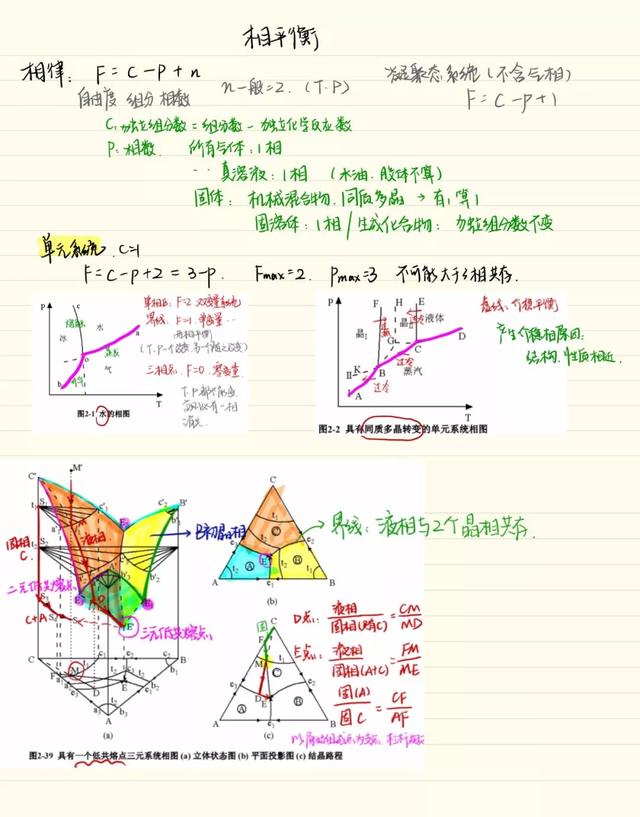 相平衡
相律: F = C - P + n
n一般=2. (T.P)
凝聚态系统(不含气相)
自由度 组分 相数
F = C - P + 1
C: 独立组分数 = 组分数 - 独立化学反应数
P: 相数. 所有气体: 1相
真溶液: 1相 (水油.胶体不算)
固体: 机械混合物.同质多晶 → 有1算1
固溶体: 1相 / 生成化合物: 独立组分数不变
单元系统 C=1
F = C - P + 2 = 3 - P. Fmax = 2. Pmax = 3 不可能大于3相共存.
P
c
水
冰
a
o
汽
b
T
单相区: F=2 双变量系统
界线: F=1 单变量
两相平衡
三相点: F=0 零变量
图2-1 水的相图
P
F H E
晶Ⅰ
晶Ⅱ
液体
过冷
G
C
D
K
B
蒸汽
过冷
A
T
虚线: 介稳平衡
产生介稳相原因:
结构.性质相近.
图2-2 具有同质多晶转变的单元系统相图
M'
C'
B'
固相
C
液相
B初晶相
界线: 液相与2个晶相共存.
二元低共熔点
三元低共熔点
C+A
C
M
B
D
E
A
(a)
C
A
B
E
(b)
D点: 液相/固相(只有C) = CM/MD
E点: 液相/固相(A+C) = FM/ME
固(A)/固C = CF/AF
C
F
M
D
E
A
B
(c)
图2-39 具有一个低共熔点三元系统相图 (a) 立体状态图 (b) 平面投影图 (c) 结晶路程